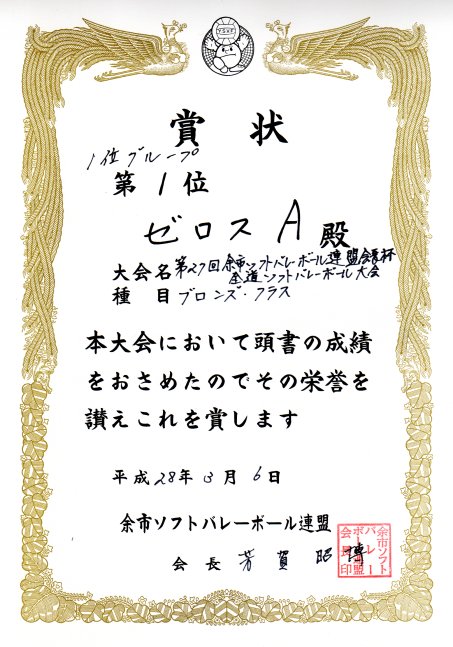 賞状
1位グループ
第1位
ゼロスA殿
大会名 第27回余市ソフトバレーボール連盟会長杯
全道ソフトバレーボール大会
種目 ブロンズ・クラス
本大会において頭書の成績
をおさめたのでその栄誉を
讃えこれを賞します
平成28年3月6日
余市ソフトバレーボール連盟
会長 芳賀 昭博
余市ソフト
バレー
ボール連盟
会長印